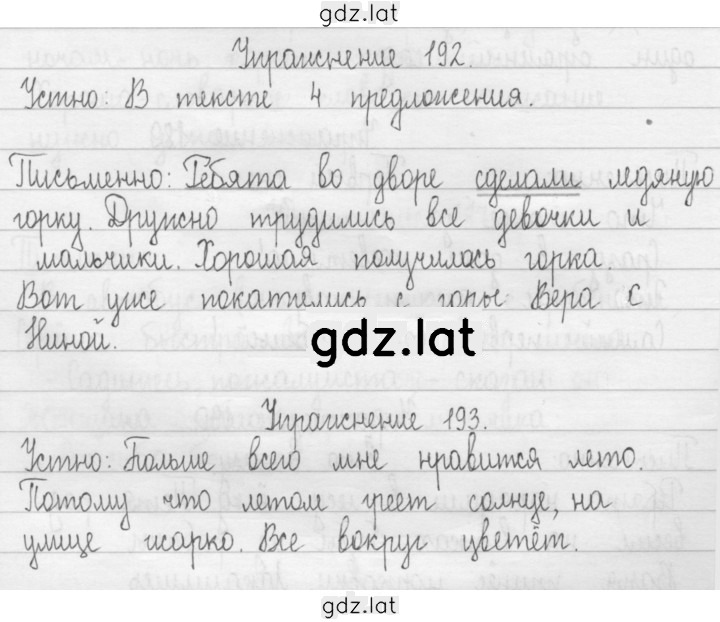 gdz.lat
Упражнение 192.
Устно: В тексте 4 предложения.
Письменно: Ребята во дворе сделали ледяную
горку. Дружно трудились все девочки и
мальчики. Хорошая получилась горка.
Вот уже покатились с горы Вера с
Ниной.
gdz.lat
Упражнение 193.
Устно: Больше всего мне нравится лето.
Потому что летом греет солнце, на
улице жарко. Все вокруг цветёт.
gdz.lat